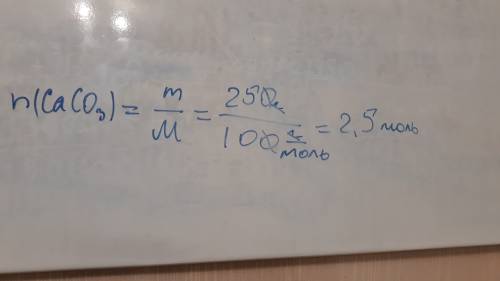 n(CaCO₃) = m/M = 250 г / 100 г/моль = 2,5 моль